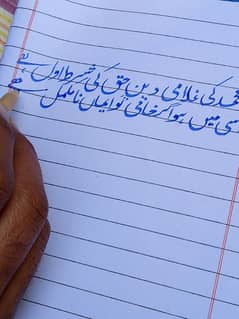 محمد کی غلامی دین حق کی شرط اول ہے
اسی میں ہو اگر خامی تو ایماں نامکمل ہے